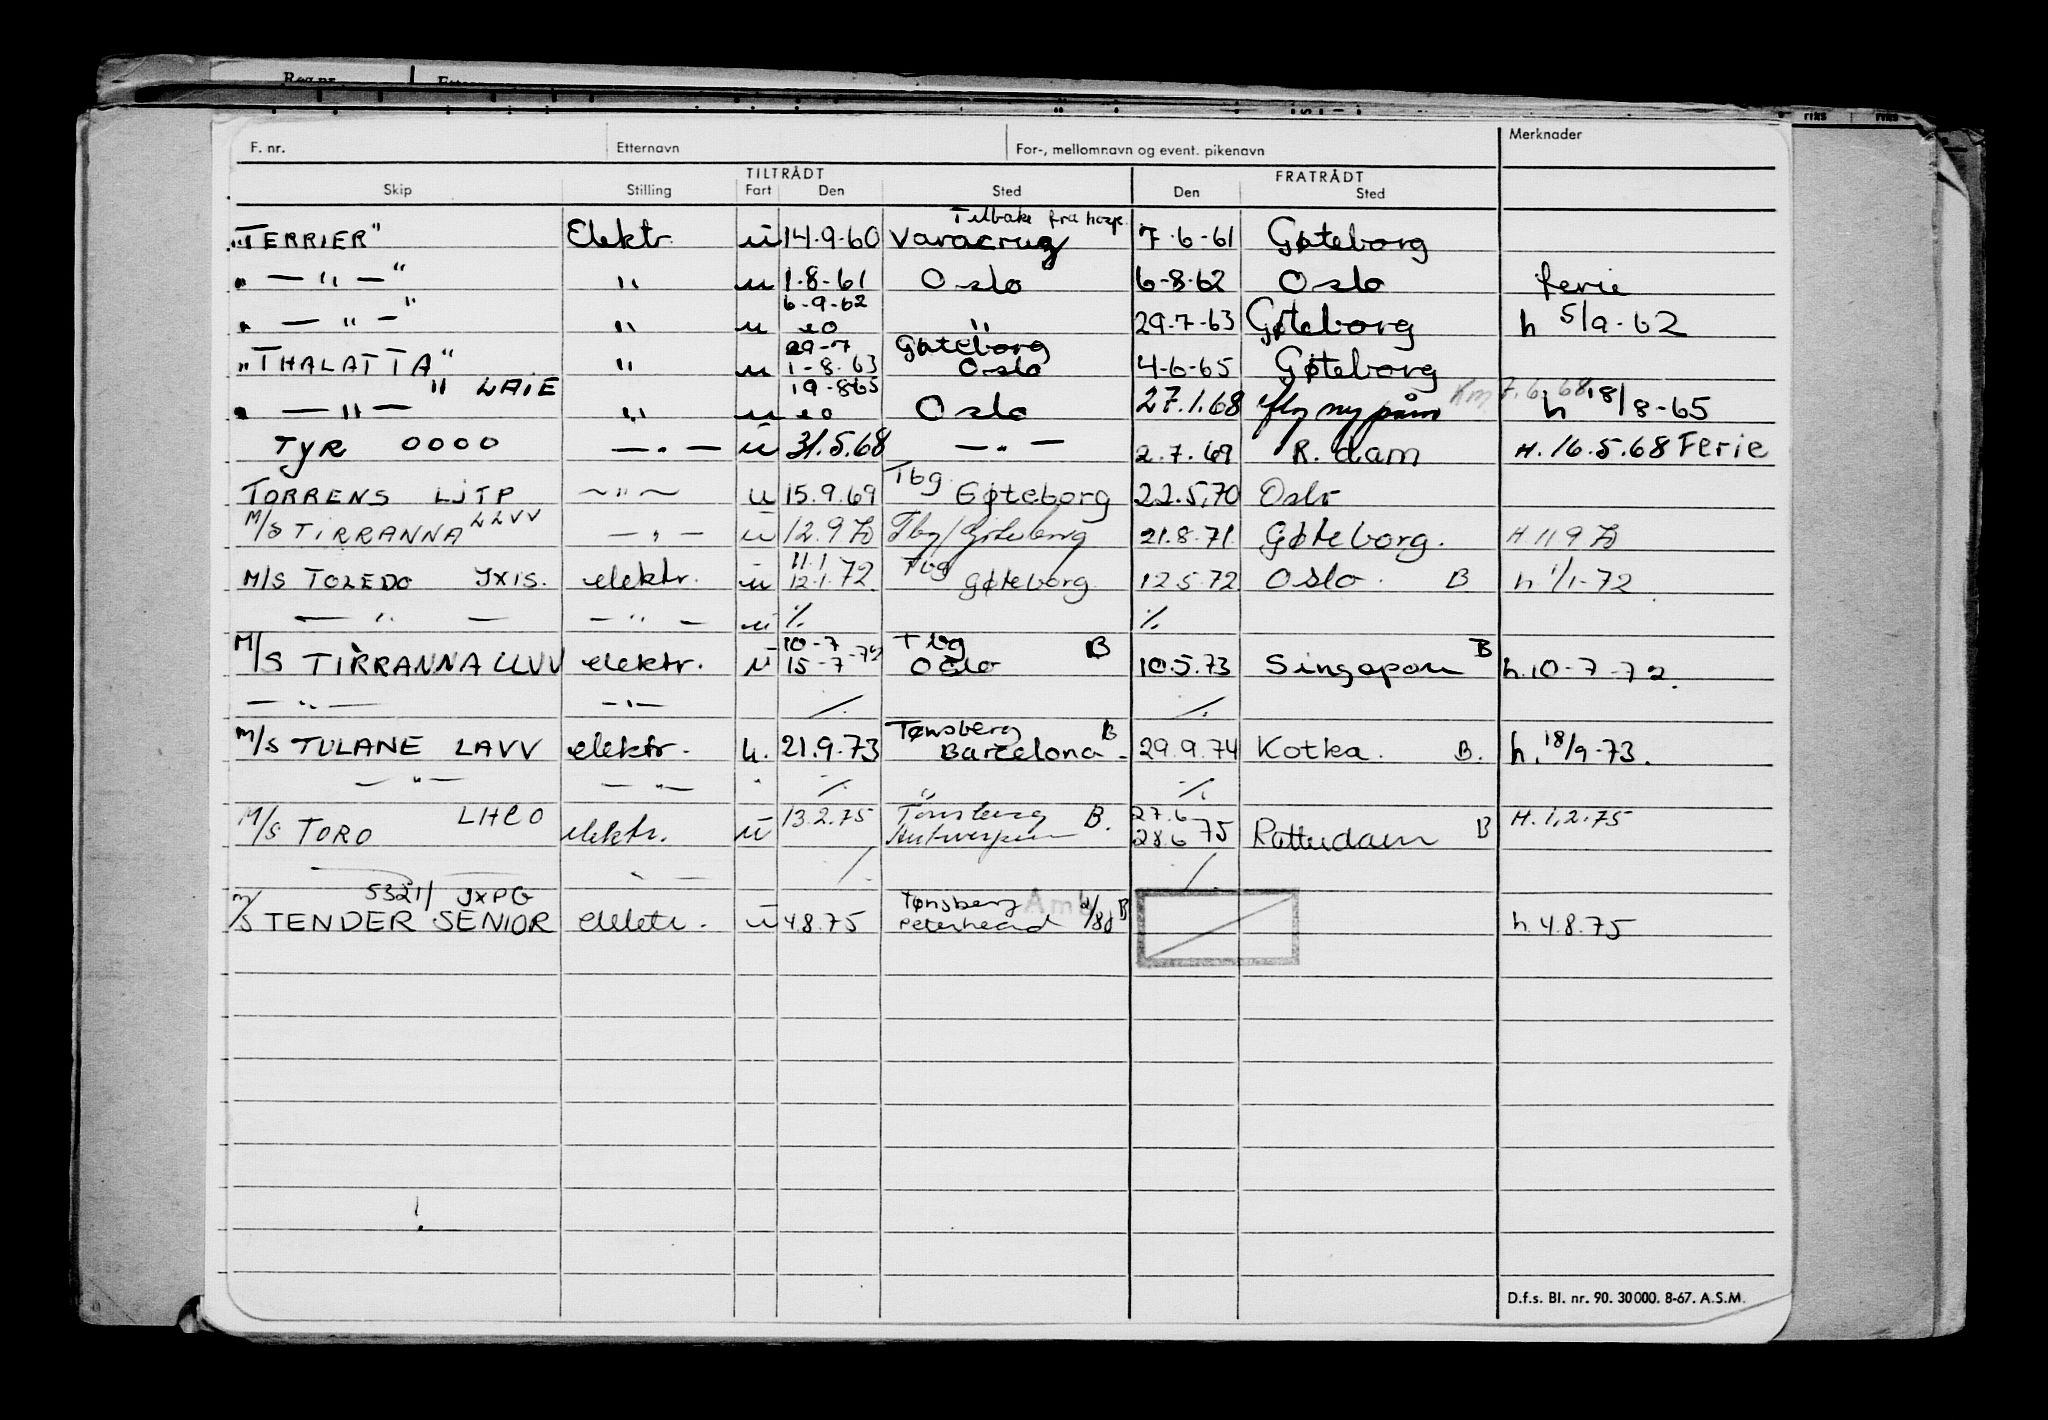 F. nr. Etternavn For-, mellomnavn og event. pikenavn Merknader
TILTRÅDT FRATRÅDT
Skip Stilling Fart Den Sted Den Sted
Tilbake fra hosp.
"TERRIER" Elektr. u 14.9-60 Varacruz 7-6-61 Gøteborg
" — " — " " u 1-8-61 Oslo 6-8-62 Oslo ferie
6-9-62
" — " — " " u eo " 29-7-63 Gøteborg h 5/9-62
29-7 Gøteborg
"THALATTA" " u 1-8-63 Oslo 4-6-65 Gøteborg
" LAIE 19-8-65
" — " — " u eo Oslo 27.1.68 h 18/8-65
TYR OOOO — " — u 31.5.68 — " — 2.7.69 R.dam H. 16.5.68 Ferie
Tbg
TORRENS LJTP — " — u 15.9.69 Gøteborg 22.5.70 Oslo
M/S TIRRANNA LLVV — " — u 12.9.70 Tbg/Göteborg 21.8.71 Gøteborg. H 11 9 70
11.1 Tbg
M/S TOLEDO JXIS. elektr. u 12.1.72. Gøteborg 12.5.72 Oslo. B h 1/1-72
— " — — " — u ⁒ ⁒
10-7 Tbg B
M/S TIRRANNA LLVV elektr. u 15-7-72 Oslo 10.5.73 Singapore B h.10-7-72.
— " — — " — ⁒ ⁒
Tønsberg B
M/S TULANE LAVV elektr. u. 21.9.73 Barcelona - 29.9.74 Kotka. B. h. 18/9-73.
— " — — " — " ⁒ ⁒
LHCO 13.2.75 Tönsberg B. 27.6 H. 1.2.75
M/S TORO elektr. u Antwerpen 28.6 75 Rotterdam B
— " — ⁒ ⁒
5321/ JXPG Tønsberg Amb
M/S TENDER SENIOR elektr. u 4.8.75 Peterhead B h. 4.8.75
D.f.s. Bl. nr. 90. 30000. 8-67. A.S.M.